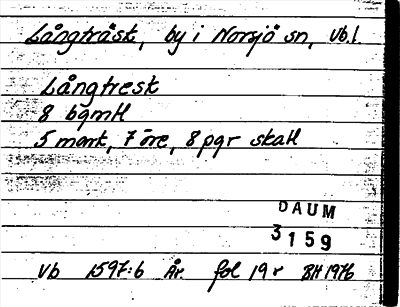 Långträsk, by i Norsjö sn, Vb.l.
Långtresk
8 bgmH
5 mark, 7 öre, 8 pgr skatt
DAUM
3159
Vb 1597:6 År fol 19 r BH 1976